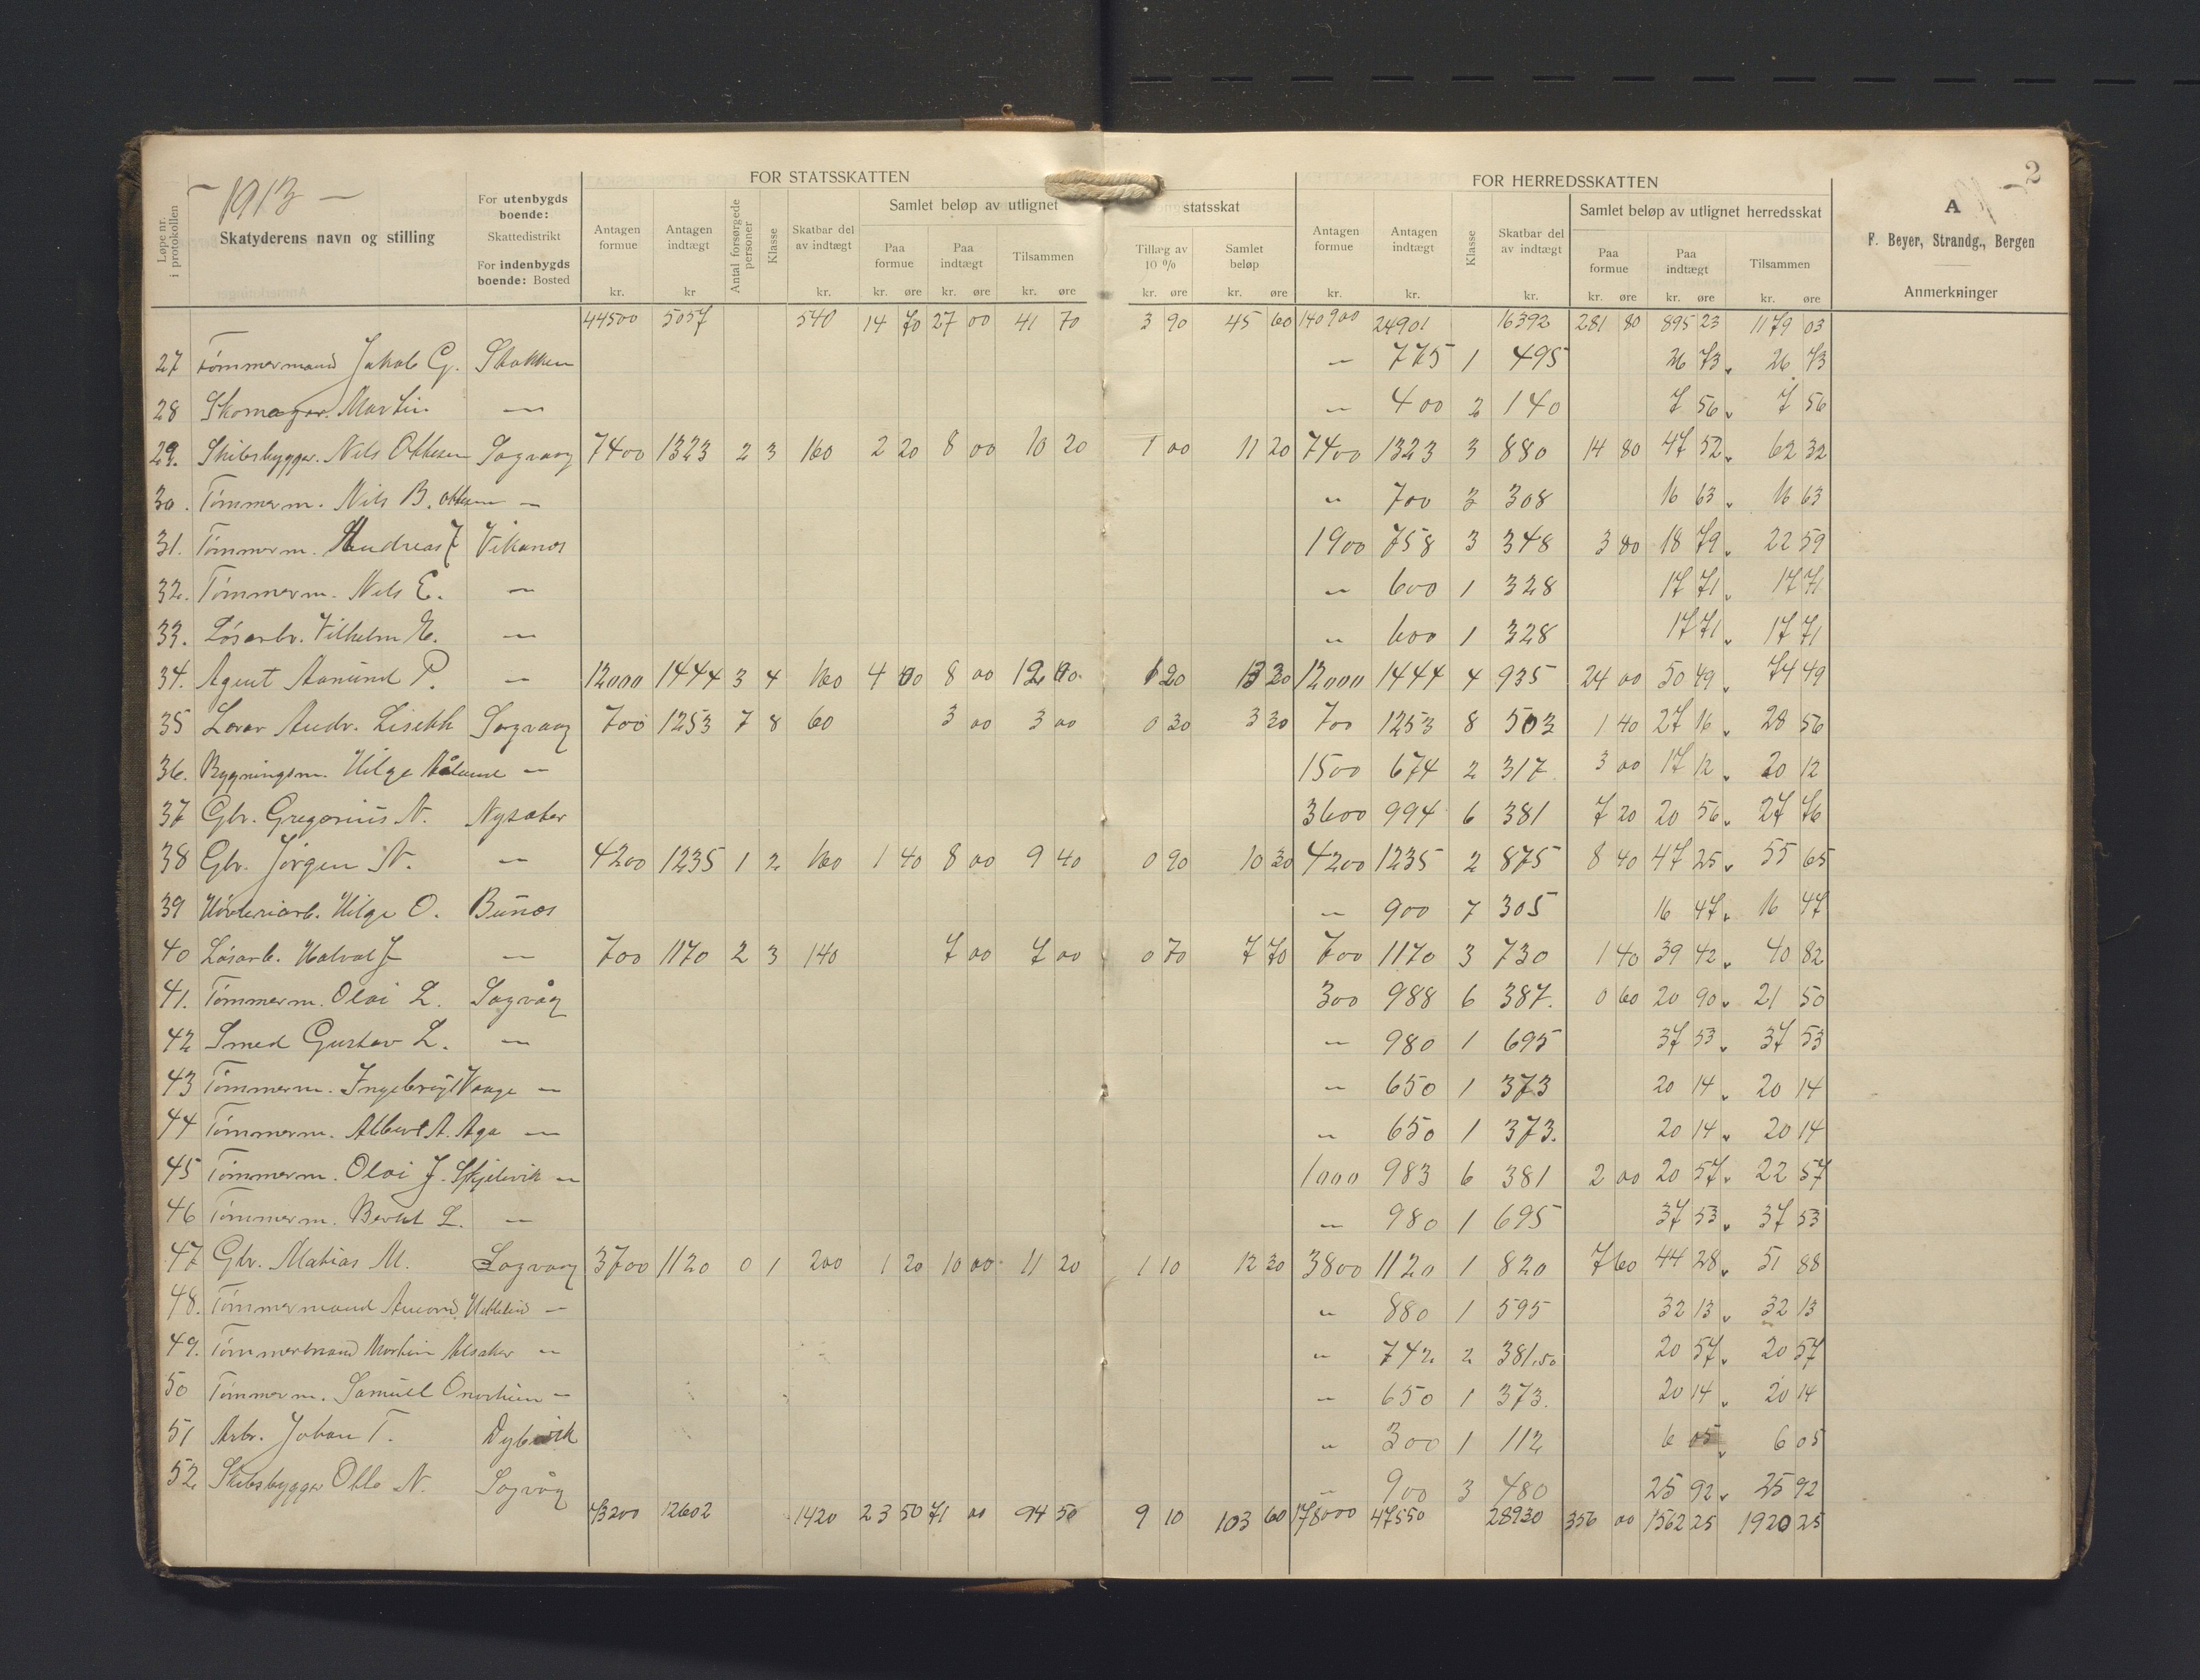 - 1913 -
2
FOR STATSSKATTEN
FOR HERREDSSKATTEN
Løpe nr. i protokollen
Skatyderens navn og stilling
For utenbygds boende: Skattedistrikt
For indenbygds boende: Bosted
Antagen formue kr.
Antagen indtægt kr
Antal forsørgede personer
Klasse
Skatbar del av indtægt kr.
Samlet beløp av utlignet statsskat
Paa formue kr. øre
Paa indtægt kr. øre
Tilsammen kr. øre
Tillæg av 10 % kr. øre
Samlet beløp kr. øre
Antagen formue kr.
Antagen indtægt kr.
Klasse
Skatbar del av indtægt kr.
Samlet beløp av utlignet herredsskat
Paa formue kr. øre
Paa indtægt kr. øre
Tilsammen kr. øre
A
F. Beyer, Strandg., Bergen
Anmerkninger
44500 5057 540 14 70 27 00 41 70 3 90 45 60 140900 24901 16392 281 80 895 23 1179 03
27 Tømmermand Jakob G. Stokken " 775 1 495 26 73 26 73
28 Skomager. Martin — " 400 2 140 7 56 7 56
29. Skibsbygger. Nils Ottesen Sagvaag 7400 1323 2 3 160 2 20 8 00 10 20 1 00 11 20 7400 1323 3 880 14 80 47 52 62 32
30. Tømmerm. Nils B. Ottesen — " 700 3 308 16 63 16 63
31. Tømmerm. Andreas J Vikanes 1900 758 3 348 3 80 18 79 22 59
32. Tømmerm. Nils E. — " 600 1 328 17 71 17 71
33. Løsarb. Vilhelm E. — " 600 1 328 17 71 17 71
34. Agent Aamund P. — 12000 1444 3 4 160 4 00 8 00 12 00 1 20 13 20 12000 1444 4 935 24 00 50 49 74 49
35 Lærer Andr. Liseth Sagvaag 700 1253 7 8 60 3 00 3 00 0 30 3 30 700 1253 8 503 1 40 27 16 28 56
36. Bygningsm. Hilge Åland — 1500 674 2 317 3 00 17 12 20 12
37 Gbr. Gregorius N. Nysæter 3600 994 6 381 7 20 20 56 27 76
38 Gbr. Jørgen N. — 4200 1235 1 2 160 1 40 8 00 9 40 0 90 10 30 4200 1235 2 875 8 40 47 25 55 65
39 Hilge O. Bunes " 900 7 305 16 47 16 47
40 Løsarb. Halval J — 700 1170 2 3 140 7 00 7 00 0 70 7 70 700 1170 3 730 1 40 39 42 40 82
41. Tømmerm. Olai L. Sagvåg 300 988 6 387. 0 60 20 90 21 50
42 Smed Gustav L. — " 980 1 695 37 53 37 53
43 Tømmerm. Ingebrigt Vaage — " 650 1 373 20 14 20 14
44 Tømmerm. Albert A. Aga — " 650 1 373. 20 14 20 14
45 Tømmerm. Olai J. Skjelevik — 1000 983 6 381 2 00 20 57 22 57
46 Tømmerm. Bertel L. — " 980 1 695 37 53 37 53
47 Gbr. Matias M. Sagvaag 3700 1120 0 1 200 1 20 10 00 11 20 1 10 12 30 3800 1120 1 820 7 60 44 28 51 88
48. Tømmermand Amond — " 880 1 595 32 13 32 13
49. Tømmermand Martin Alsaker — " 742 2 381.50 20 57 20 57
50 Tømmerm. Samuel — " 650 1 373. 20 14 20 14
51 Arbr. Johan T. Dybvik " 300 1 112 6 05 6 05
52 Skibsbygger Otto N. Sagvåg " 900 3 480 25 92 25 92
73200 12602 1420 23 50 71 00 94 50 9 10 103 60 178000 47550 28930 356 00 1562 25 1920 25